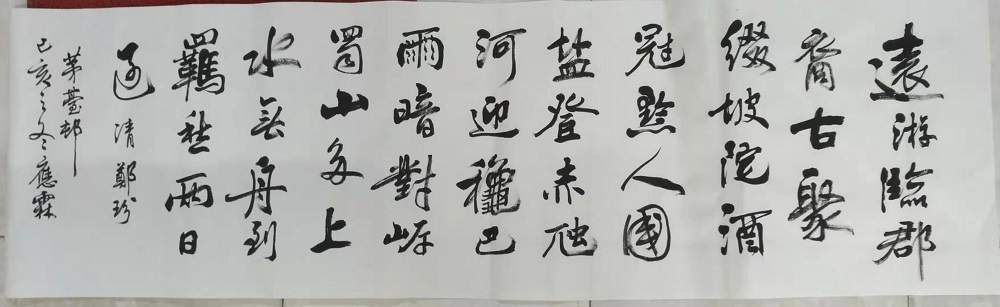 遠游臨郡
裔古聚
缀坡陀酒
冠黔人國
盐登赤虺
河迎龝巴
爾暗對岸
蜀山多上
水無舟到
羈愁兩日
過 清 鄭珍
茅薹邨
己亥之冬應霖